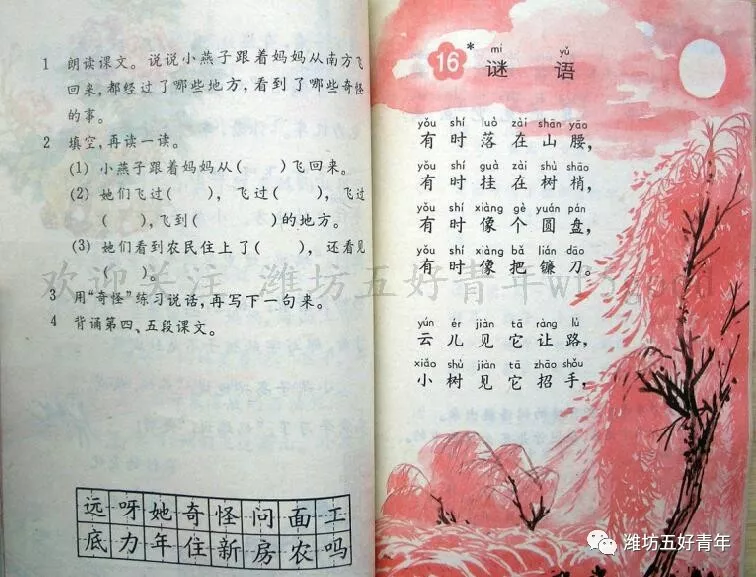 1 朗读课文。说说小燕子跟着妈妈从南方飞
回来,都经过了哪些地方,看到了哪些奇怪
的事。
2 填空,再读一读。
(1) 小燕子跟着妈妈从(    )飞回来。
(2) 她们飞过(    ),飞过(    ),飞过
(    ),飞到(    )的地方。
(3) 她们看到农民住上了(    ),还看见
(    )。
3 用“奇怪”练习说话,再写下一句来。
4 背诵第四、五段课文。
远呀她奇怪问面工
底力年住新房农吗
mí yǔ
16* 谜语
yǒu shí luò zài shān yāo
有时落在山腰,
yǒu shí guà zài shù shāo
有时挂在树梢,
yǒu shí xiàng gè yuán pán
有时像个圆盘,
yǒu shí xiàng bǎ lián dāo
有时像把镰刀。
yún ér jiàn tā ràng lù
云儿见它让路,
xiǎo shù jiàn tā zhāo shǒu
小树见它招手,
欢迎关注 潍坊五好青年
潍坊五好青年